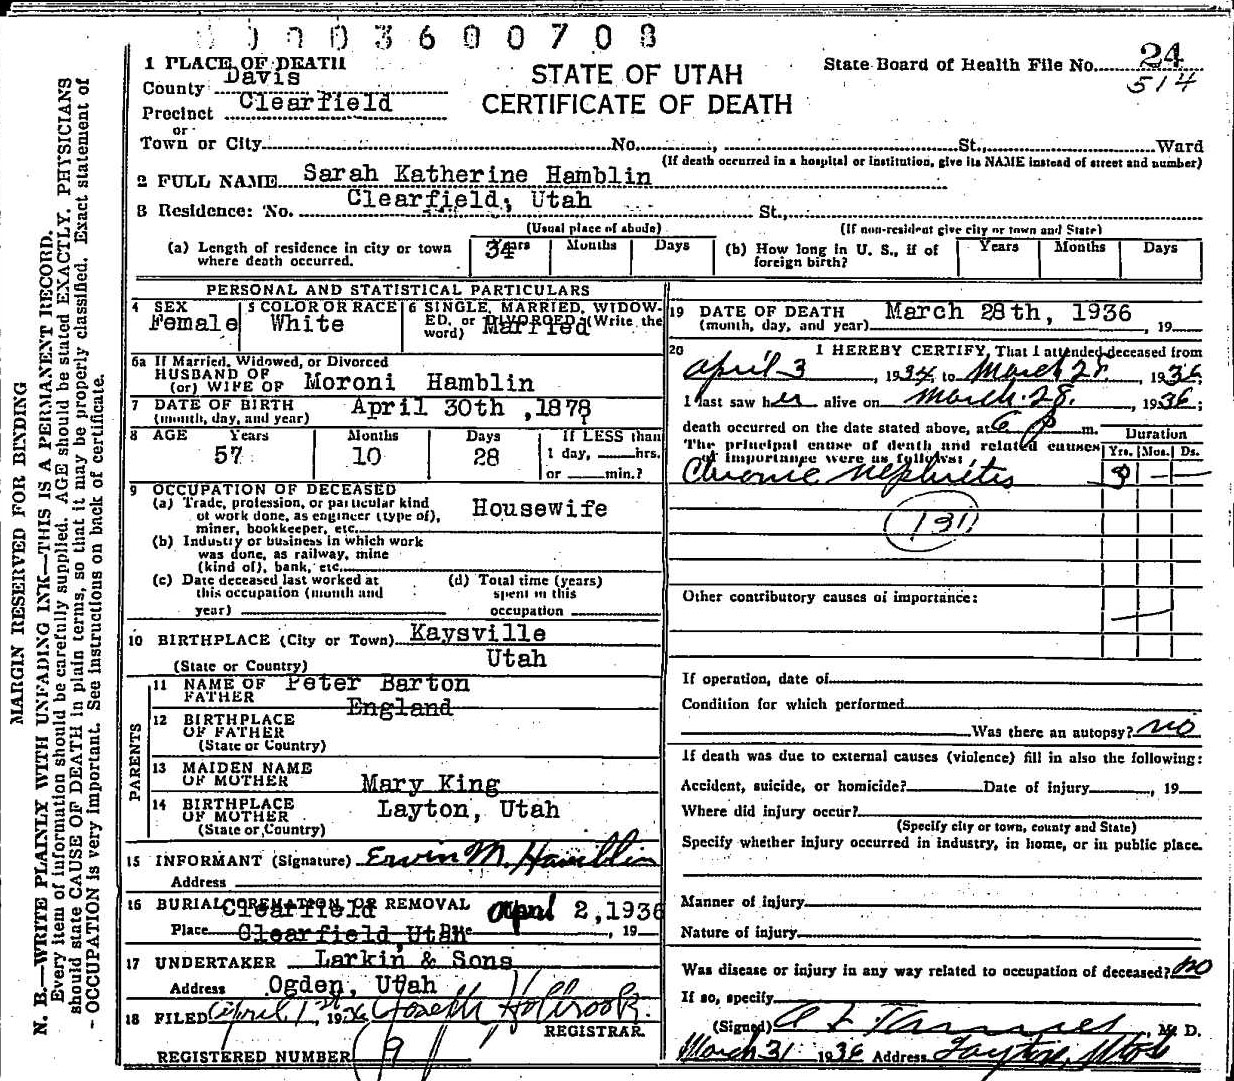 0 0 0 0 3 6 0 0 7 0 8
1 PLACE OF DEATH
County Davis
Precinct Clearfield
or
Town or City No. , St., Ward
STATE OF UTAH
CERTIFICATE OF DEATH
State Board of Health File No. 24
514
(If death occurred in a hospital or institution, give its NAME instead of street and number)
2 FULL NAME Sarah Katherine Hamblin
3 Residence: No. Clearfield, Utah St.,
(Usual place of abode) (If non-resident give city or town and State)
(a) Length of residence in city or town where death occurred. 34 Years Months Days
(b) How long in U. S., if of foreign birth? Years Months Days
PERSONAL AND STATISTICAL PARTICULARS
4 SEX
Female
5 COLOR OR RACE
White
6 SINGLE, MARRIED, WIDOW-
ED, or DIVORCED (Write the
word) Married
6a If Married, Widowed, or Divorced
HUSBAND OF
(or) WIFE OF Moroni Hamblin
7 DATE OF BIRTH April 30th ,1878
(month, day, and year)
8 AGE Years Months Days If LESS than
57 10 28 1 day, hrs.
or min.?
9 OCCUPATION OF DECEASED
(a) Trade, profession, or particular kind
of work done, as engineer (type of),
miner, bookkeeper, etc. Housewife
(b) Industry or business in which work
was done, as railway, mine
(kind of), bank, etc.
(c) Date deceased last worked at
this occupation (month and
year)
(d) Total time (years)
spent in this
occupation
10 BIRTHPLACE (City or Town) Kaysville
(State or Country) Utah
PARENTS
11 NAME OF FATHER Peter Barton
12 BIRTHPLACE OF FATHER England
(State or Country)
13 MAIDEN NAME OF MOTHER Mary King
14 BIRTHPLACE OF MOTHER Layton, Utah
(State or Country)
15 INFORMANT (Signature) Erwin M. Hamblin
Address
16 BURIAL, CREMATION, OR REMOVAL
Clearfield April 2, 1936
Place Clearfield, Utah Date , 19
17 UNDERTAKER Larkin & Sons
Address Ogden, Utah
18 FILED April 1st 1936 Joseph Holbrook
REGISTRAR.
REGISTERED NUMBER 9
19 DATE OF DEATH March 28th, 1936
(month, day, and year) , 19
20 I HEREBY CERTIFY, That I attended deceased from
April 3, 1934, to March 28, 1936;
I last saw her alive on March 28, 1936;
death occurred on the date stated above, at 6 p m.
The principal cause of death and related causes
of importance were as follows:
Duration
Yrs. Mos. Ds.
Chronic nephritis
131
Other contributory causes of importance:
If operation, date of
Condition for which performed
Was there an autopsy? no
If death was due to external causes (violence) fill in also the following:
Accident, suicide, or homicide? Date of injury , 19
Where did injury occur?
(Specify city or town, county and State)
Specify whether injury occurred in industry, in home, or in public place.
Manner of injury
Nature of injury
Was disease or injury in any way related to occupation of deceased? no
If so, specify
(Signed) , M. D.
March 31 1936 Address Layton, Utah
MARGIN RESERVED FOR BINDING
N. B.—WRITE PLAINLY WITH UNFADING INK—THIS IS A PERMANENT RECORD.
Every item of information should be carefully supplied. AGE should be stated EXACTLY. PHYSICIANS
should state CAUSE OF DEATH in plain terms, so that it may be properly classified. Exact statement of
OCCUPATION is very important. See instructions on back of certificate.